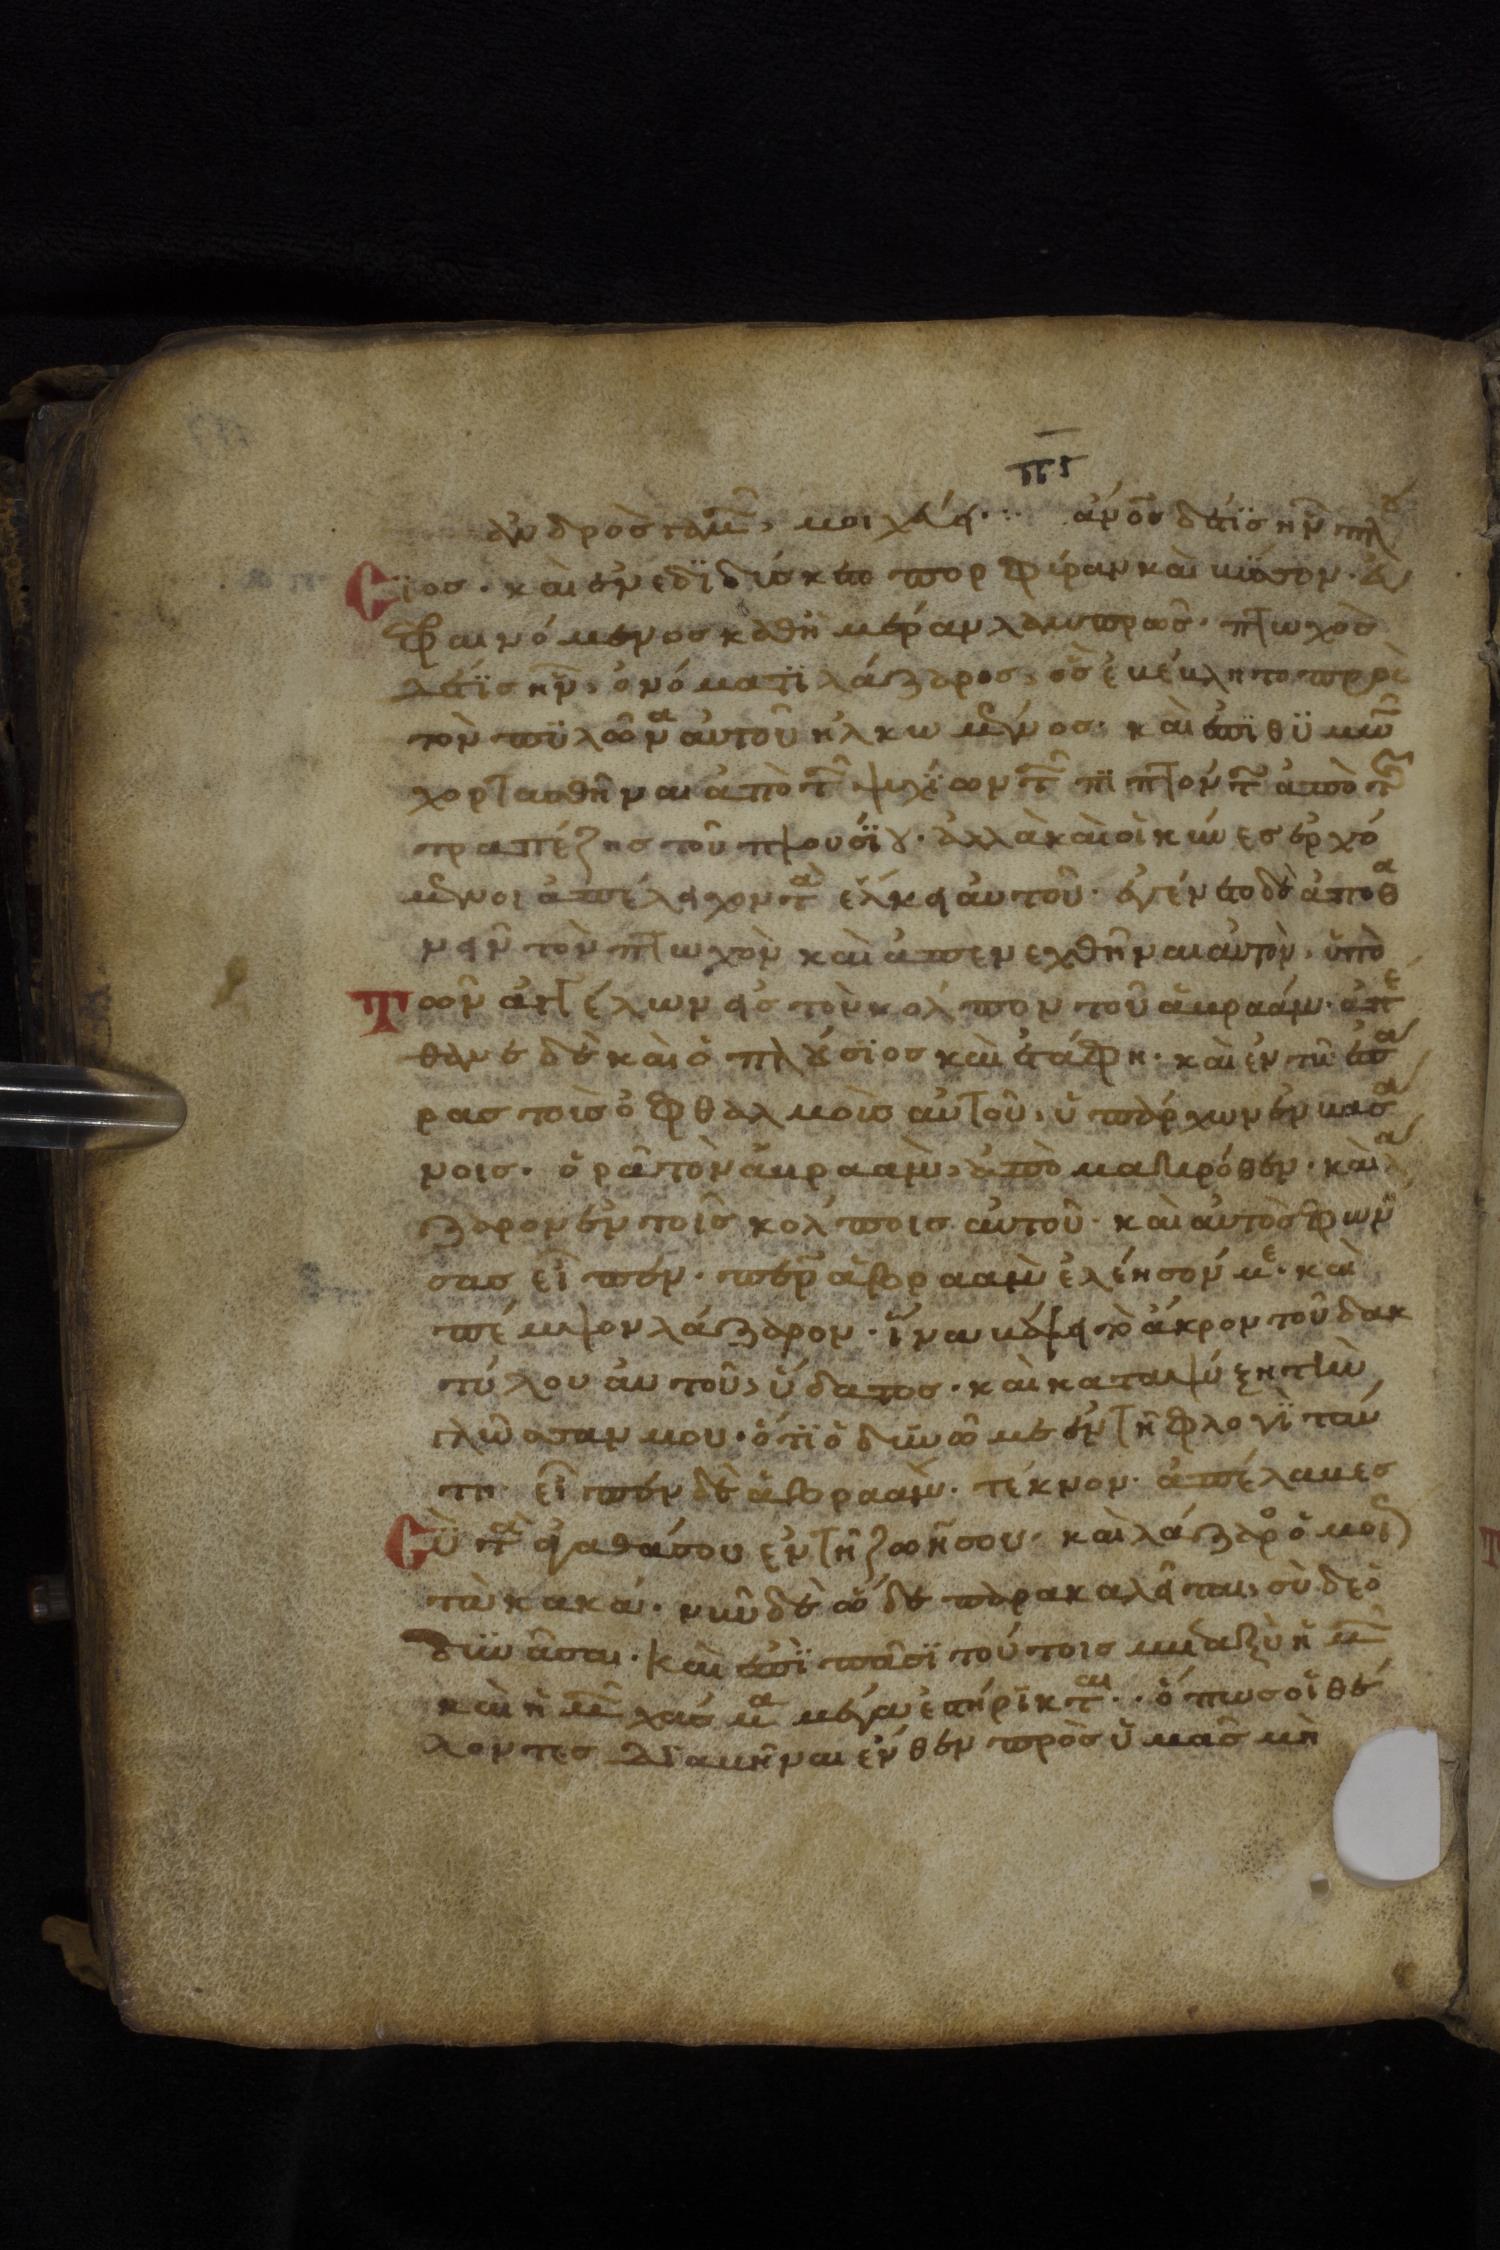 πϛ
ἀνδρὸς γαμῶν, μοιχεύει· ἄνος δέ τϊς ἦν πλου
σϊος· καὶ ἐνεδϊδύσκετο πορφύραν καὶ βύσσον· εὐ
φραινόμενος καθἡμέραν λαμπρῶς· πτωχὸς
δέ τϊς ἦν, ὀνόματϊ λάζαρος, ὃς ἐβέβλητο πρὸς
τὸν πϋλῶνα αὐτοῦ ἡλκωμένος· καὶ ἐπϊθϋμῶν
χορτασθῆναι ἀπὸ τῶν ψιχίων τῶν πϊπτόντων ἀπὸ τῆς
τραπέζης τοῦ πλουσίου· ἀλλὰ καὶ οἱ κύνες ἐρχό
μενοι ἀπέλειχον τὰ ἕλκη αὐτοῦ· ἐγένετο δὲ ἀποθα
νεῖν τὸν πτωχὸν καὶ ἀπενεχθῆναι αὐτὸν, ὑπὸ
τῶν ἀγγέλων εἰς τὸν κόλπον τοῦ ἀβραάμ· ἀπέ
θανε δὲ καὶ ὁ πλούσϊος καὶ ἐτάφη· καὶ ἐν τῶ ἐπα
ρας τοῖς ὀφθαλμοῖς αὐτοῦ, ὑπάρχων ἐν βασα
νοις· ὁρᾶ τὸν ἀβραὰμ, ἀπὸ μακρόθεν· καὶ λα
ζαρον ἐν τοῖς κόλποις αὐτοῦ· καὶ αὐτὸς φωνή
σας εἶπεν· πάτερ ἀβραὰμ ἐλέησόν με· καὶ
πέμψον λάζαρον· ἵνα βάψει τὸ ἄκρον τοῦ δακ
τύλου αὐτοῦ, ὕδατος· καὶ καταψύξη τὴν
γλῶσσαν μου· ὅτϊ ὀδϋνῶμε ἐν τῆ φλογῒ ταύ
τη· εἶπεν δὲ ἀβραάμ· τέκνον· ἀπέλαβες
σὺ τὰ ἀγαθά σου ἐν τῆ ζωῆ σου· καὶ λάζαρος ὁμοί
τὰ κακά· νῦν δὲ ὧδε παρακαλεῖται, σὺ δὲ ὀ
δϋνᾶσαι· καὶ ἐπῒ πᾶσϊ τούτοις μεταξὺ ἡμῶν
καὶ ὑμῶν χάσμα μέγα ἐστήρϊκται· ὅπως οἱ θέ
λοντες διαβῆναι ἔνθεν πρὸς ὑμᾶς μὴ